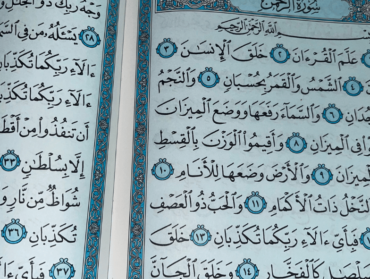 سُورَةُ الرَّحْمَٰن
بِسْمِ ٱللَّهِ ٱلرَّحْمَٰنِ ٱلرَّحِيمِ
عَلَّمَ ٱلْقُرْءَانَ ٢ خَلَقَ ٱلْإِنسَٰنَ ٣
٤ ٱلشَّمْسُ وَٱلْقَمَرُ بِحُسْبَانٍ ٥ وَٱلنَّجْمُ
جُدَانِ ٦ وَٱلسَّمَآءَ رَفَعَهَا وَوَضَعَ ٱلْمِيزَانَ
فِى ٱلْمِيزَانِ ٨ وَأَقِيمُوا۟ ٱلْوَزْنَ بِٱلْقِسْطِ
ٱلْمِيزَانَ ٩ وَٱلْأَرْضَ وَضَعَهَا لِلْأَنَامِ ١٠
ٱلنَّخْلُ ذَاتُ ٱلْأَكْمَامِ ١١ وَٱلْحَبُّ ذُو ٱلْعَصْفِ
فَبِأَىِّ ءَالَآءِ رَبِّكُمَا تُكَذِّبَانِ ١٣ خَلَقَ
صَلْصَٰلٍ كَٱلْفَخَّارِ ١٤ وَخَلَقَ ٱلْجَآنَّ
وَجْهُ رَبِّكَ ذُو ٱلْجَلَٰلِ
٢٨ يَسْـَٔلُهُۥ مَن فِى
ءَالَآءِ رَبِّكُمَا تُكَذِّبَانِ
ءَالَآءِ رَبِّكُمَا تُكَذِّبَانِ
أَن تَنفُذُوا۟ مِنْ أَقْطَارِ
إِلَّا بِسُلْطَٰنٍ ٣٣
شُوَاظٌ مِّن نَّارٍ
تُكَذِّبَانِ ٣٦
ءَالَآءِ ٣٧